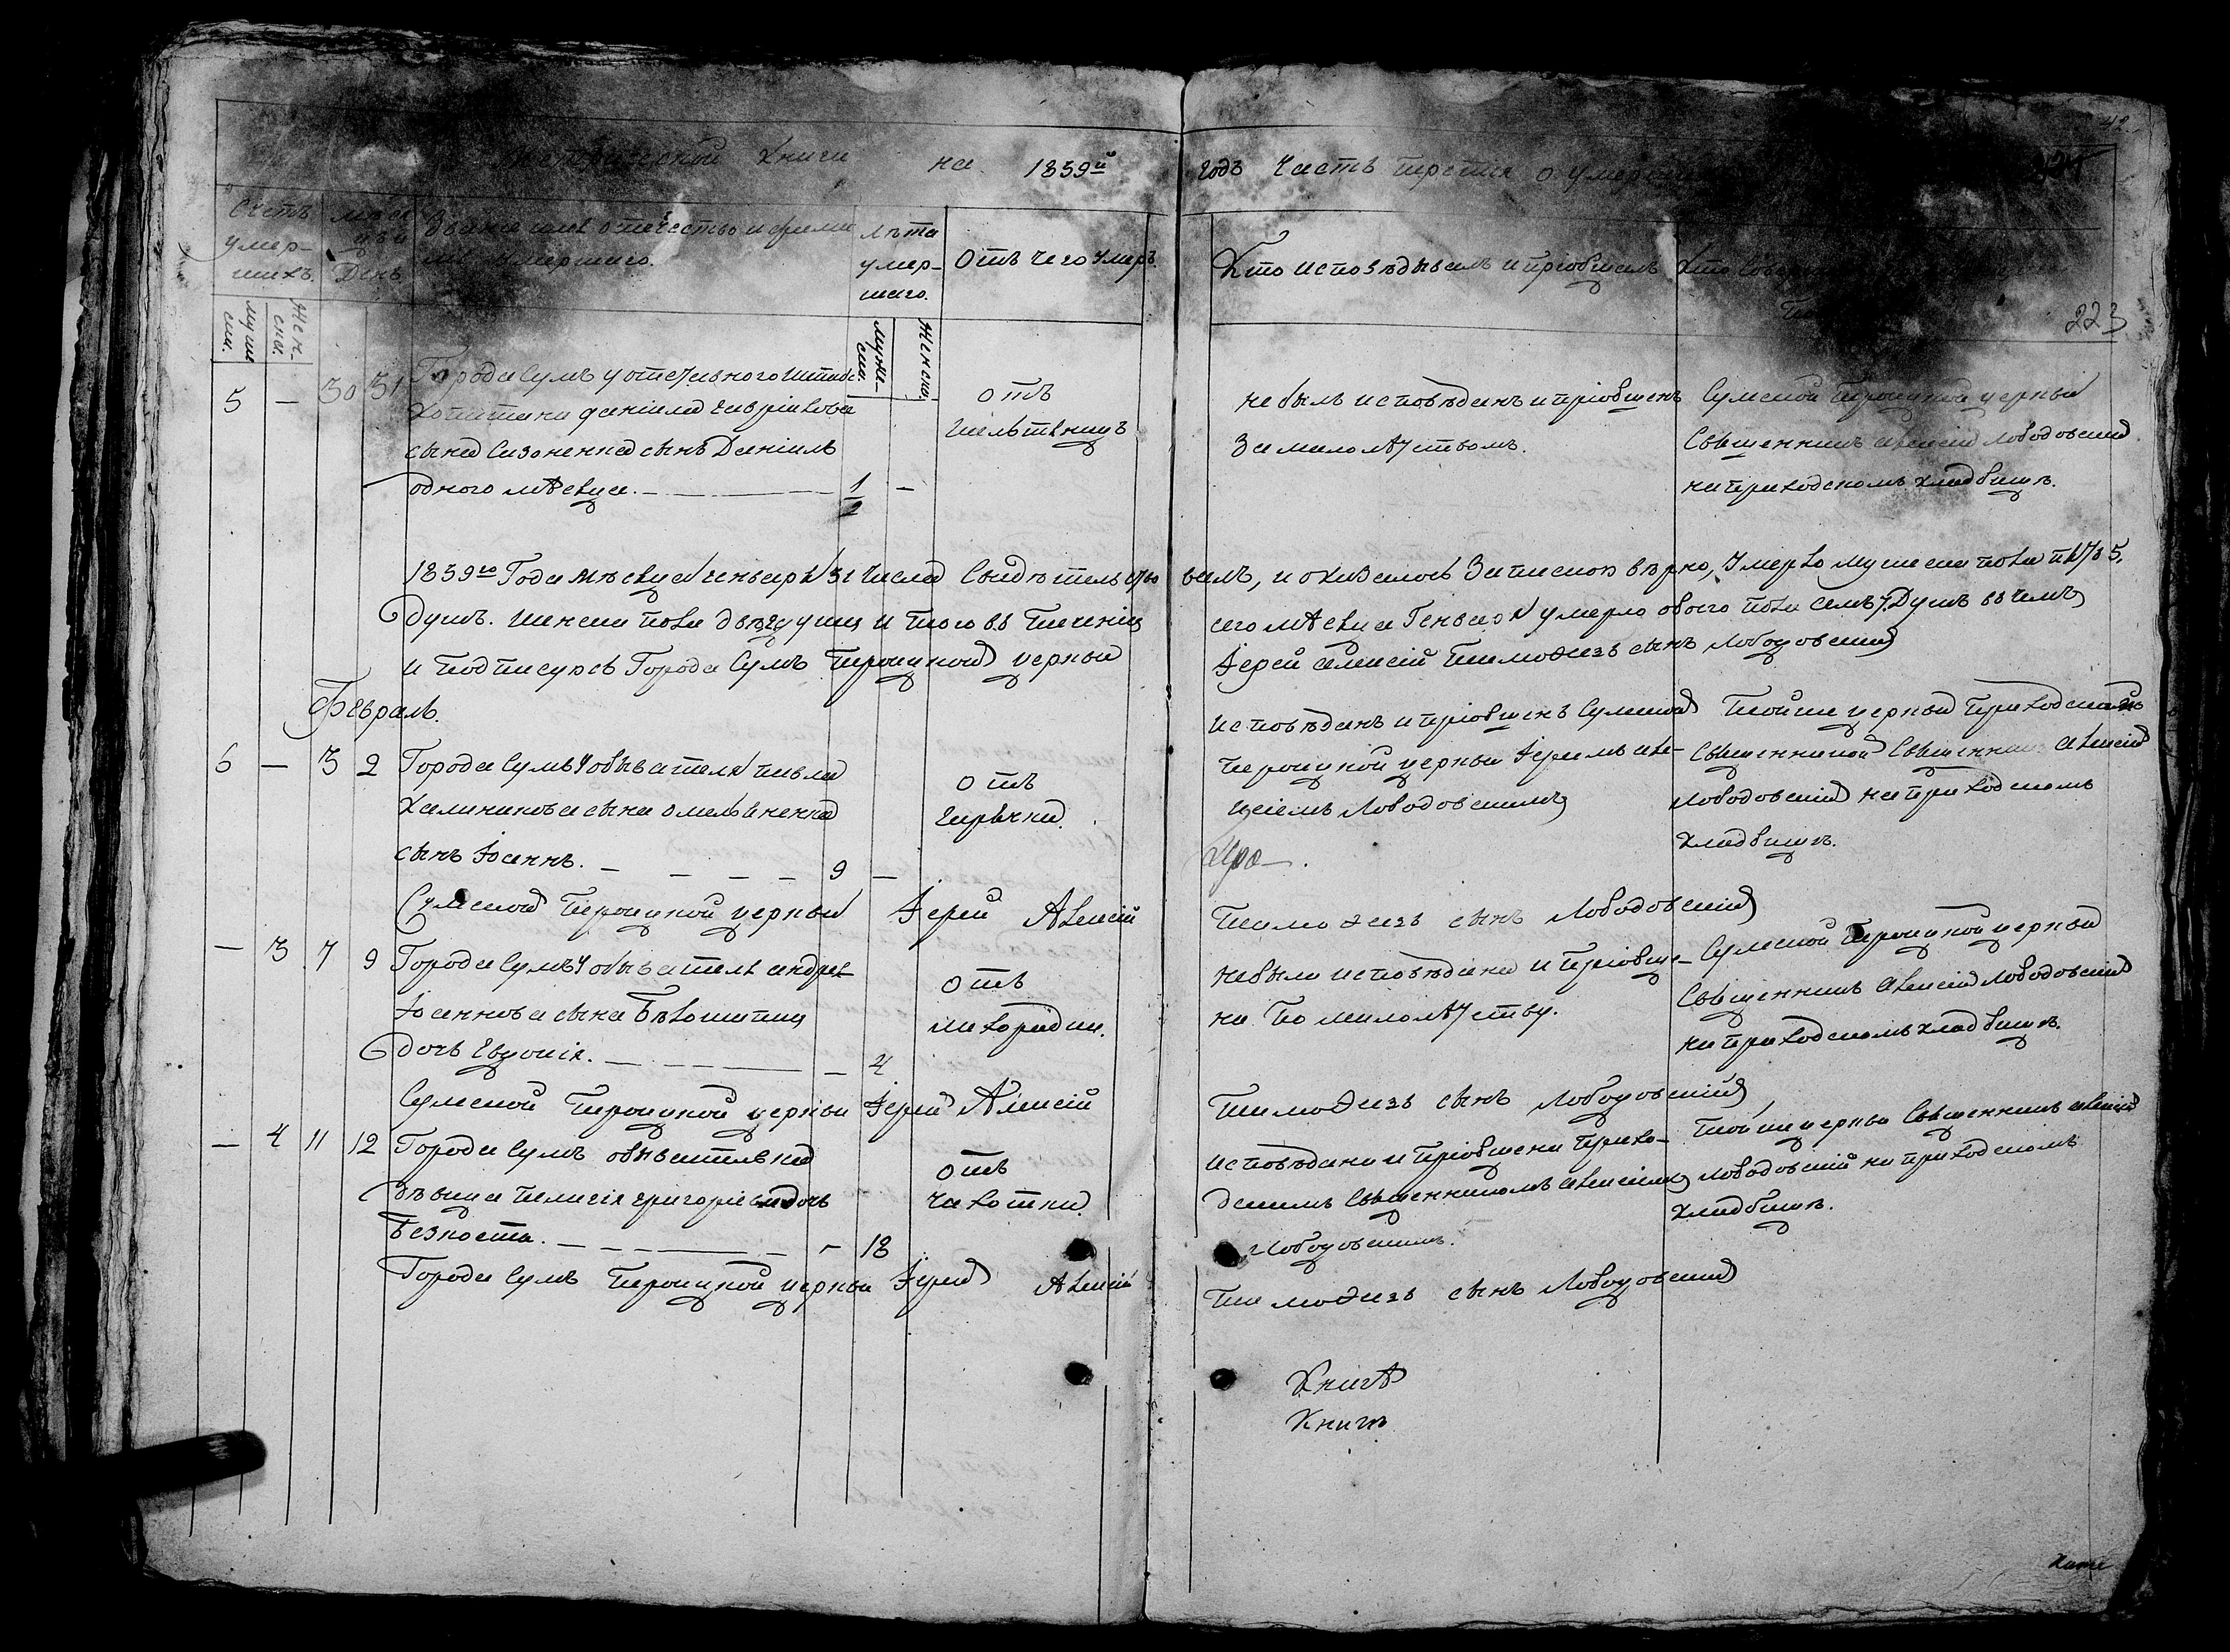 Метрической Книги на 1839й годъ Часть третія о умерш
42
223
Счетъ умер- шихъ.
Мѣся цъ и День
Званіе имя отечество и фами лія умершаго.
Лѣта умер- шаго.
Отъ чего умеръ.
Кто исповѣдывалъ и пріобщалъ
Кто совер
муж ска.
Жен- ска.
муже- ска.
Женска.
5 — 30 31 Города Сумъ у отставного Штабс
Капитана Даніила Гавріилова
сына Сизоненка сынъ Даніилъ
одного мѣсяца. — 1/2 —
отъ
не былъ исповѣданъ и пріобщенъ
За малолѣтствомъ.
Сумской Троицкой церкви
Священникъ Алексій Лободовскій
на приходскомъ кладбищѣ.
1839го Года мѣсяца Генваря 31 числа свидѣтельство валъ, и оказалось записано вѣрно, Умерло мужеска пола пять 5.
душъ. женска пола двѣ души итого въ теченіи сего мѣсяца Генваря умерло обоего пола семь 7. Душъ въ чемъ
и подписуюсь Города Сумъ Троицкой церкви Іерей Алексій Тимофеевъ сынъ Лободовскій
Февраль.
6 — 3 2 Города Сумъ У обывателя Павла
Калиникова сына Омельяненка
сынъ Іоаннъ. — — — — 9 —
отъ
Горячки.
исповѣданъ и пріобщенъ Сумской
Троицкой церкви Іереемъ Але-
ксіемъ Лободовскимъ
Тойже церкви приходскій
Священникъ Алексій
Лободовскій на приходскомъ
кладбищѣ.
Сумской Троицкой церкви Іерей Алексій Тимофеевъ сынъ Лободовскій
— 3 7 9 Города Сумъ У обывателя Андрея
Іоаннова сына Бѣлошапки
дочь Евдокія. — — 4
отъ
лихорадки.
не была исповѣдана и пріобще-
на по малолѣтству.
Сумской Троицкой церкви
Священникъ Алексій Лободовскій
на приходскомъ кладбищѣ.
Сумской Троицкой церкви Іерей Алексій Тимофеевъ сынъ Лободовскій
— 4 11 12 Города Сумъ обывателька
дѣвица Пелагія Григорьева дочь
— — 18
отъ
Чахотки.
исповѣдана и пріобщена прихо-
дскимъ Священникомъ Алексіемъ
Лободовскимъ.
Тойже церкви Священникъ Алексій
Лободовскій на приходскомъ
кладбищѣ.
Города Сумъ Троицкой церкви Іерей Алексій Тимофеевъ сынъ Лободовскій
Книга
Книгъ